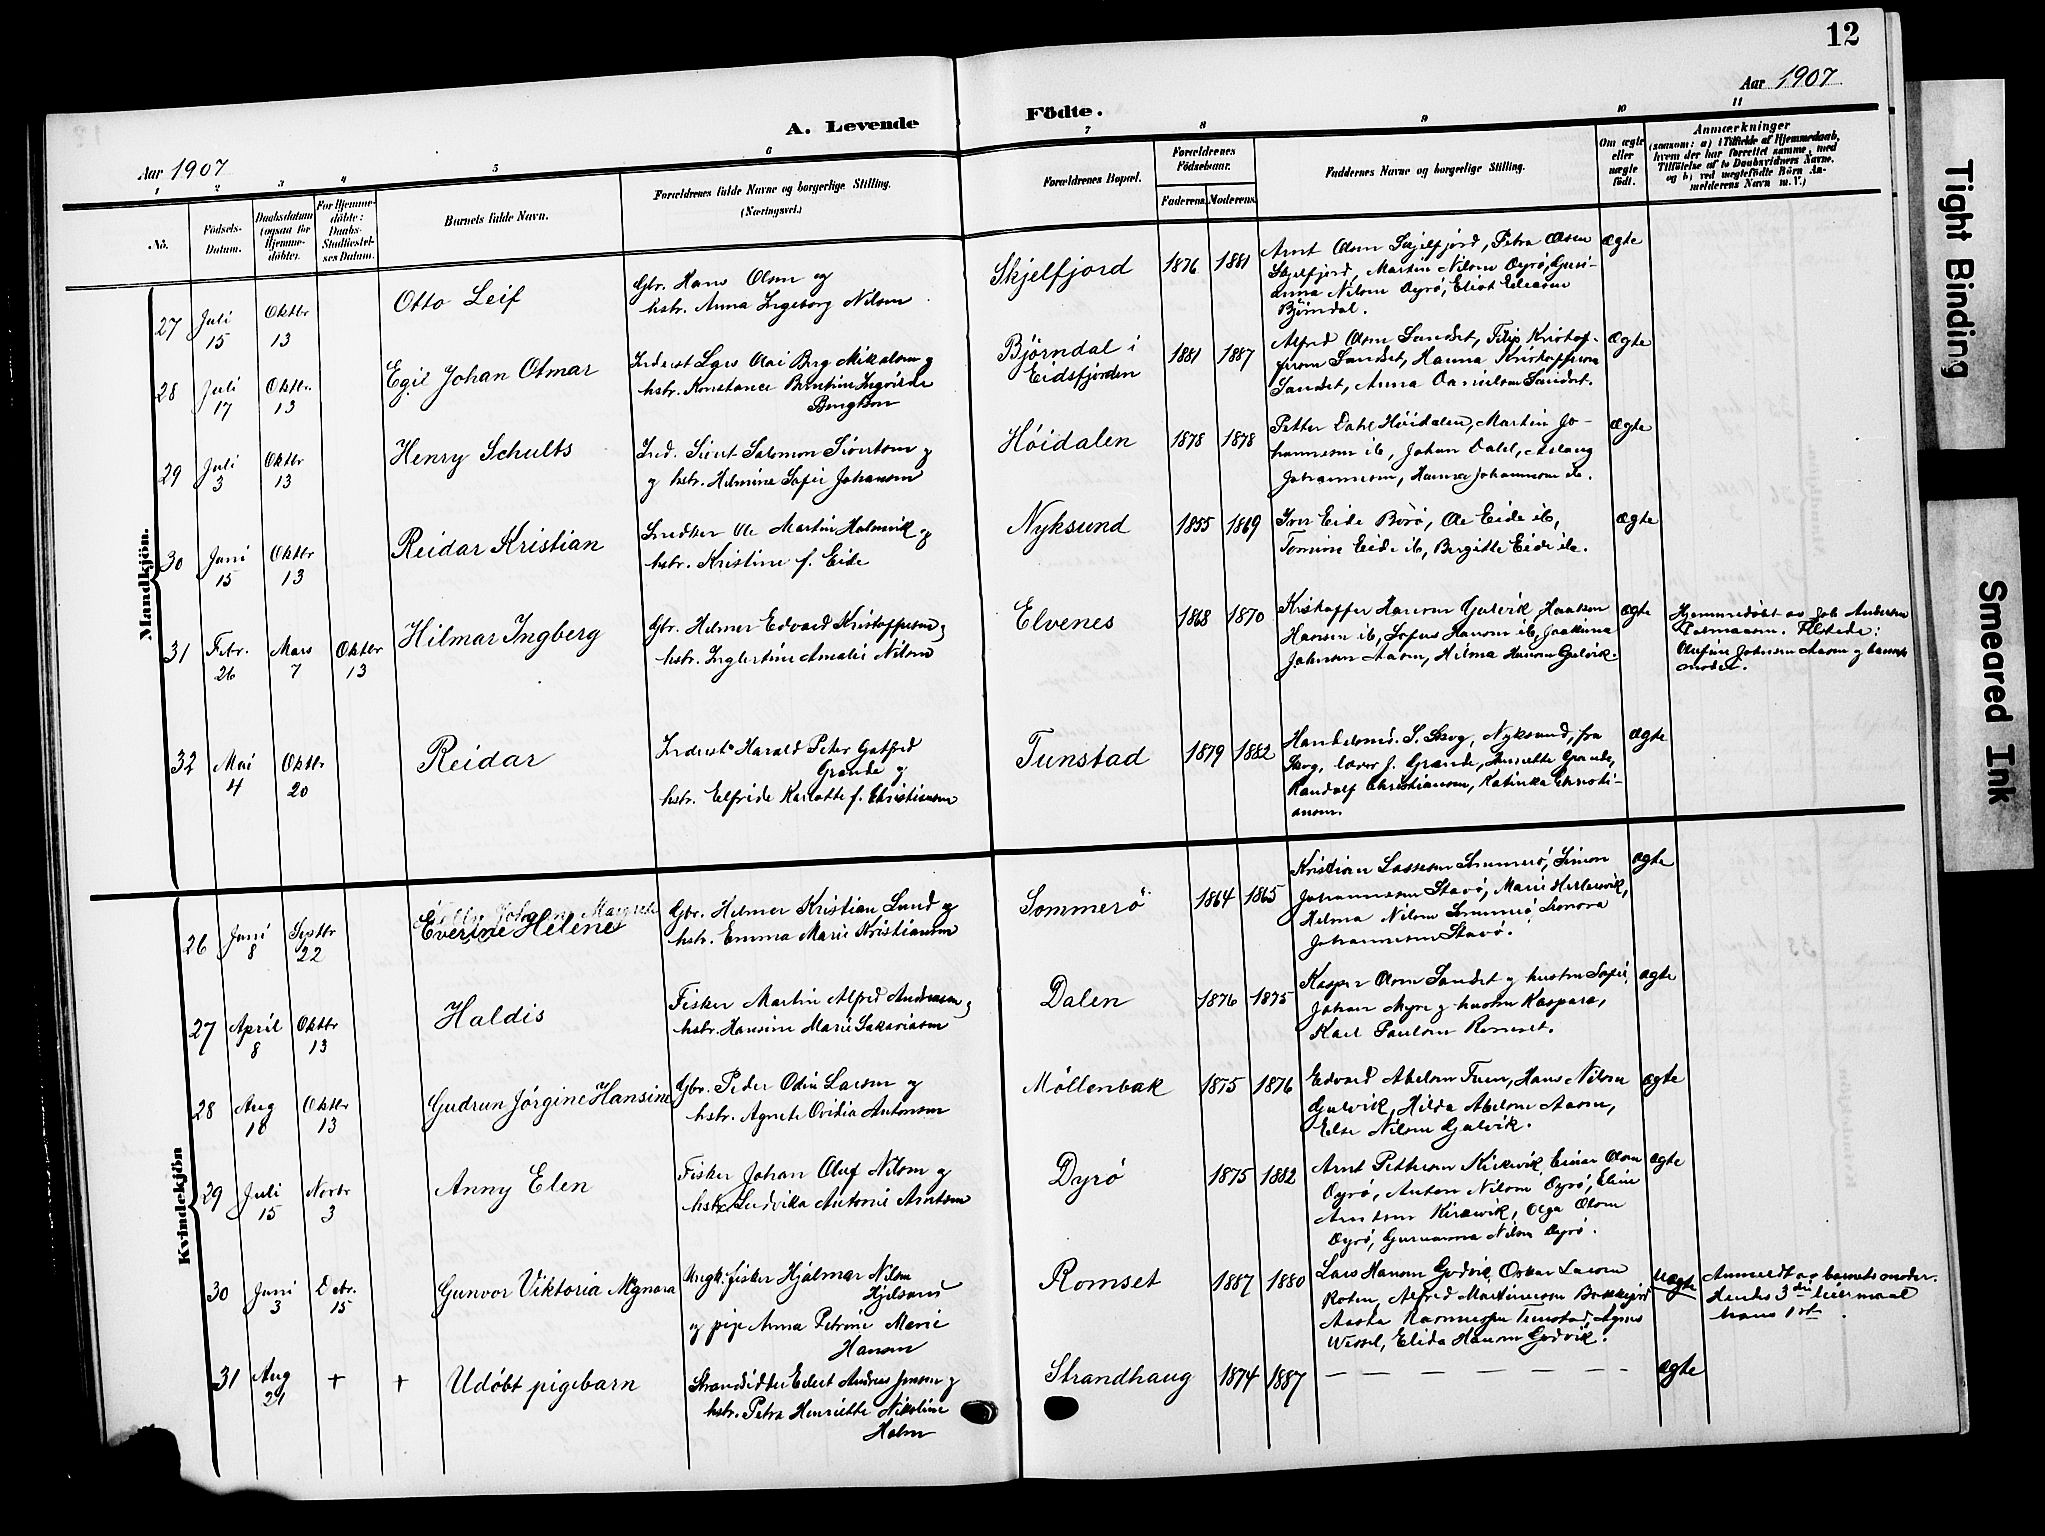 12
Aar 1907
A. Levende Födte.
Aar 1907
1 2 3 4 5 6 7 8 9 10 11
No.
Födsels-
Datum.
Daabsdatum
(ogsaa for
Hjemme-
döbte).
For Hjemme-
döbte:
Daabs-
Stadfæstel-
ses Datum.
Barnets fulde Navn.
Forældrenes fulde Navne og borgerlige Stilling.
(Næringsvei.)
Forældrenes Bopæl.
Forældrenes
Födselsaar.
Faderens. Moderens.
Faddernes Navne og borgerlige Stilling.
Om ægte
eller
uægte
født.
Anmærkninger
(saasom: a) i Tilfælde af Hjemmedaab,
hvem der har forrettet samme, med
Tilføielse af to Daabsvidners Navne.
og b) ved uægtefödte Börn An-
melderens Navn m. V.)
Mandkjön.
27 Juli 15 Oktbr 13 Otto Leif
Gbr. Hans Olsen og
hstr. Anna Ingeborg Nilsen
Skjelfjord 1876 1881
Arnt Olsen Skjelfjord, Petra Olsen
Skjelfjord, Martin Nilsen Dyrö,
anna Nilsen Dyrö, Eliot Eliasen
Björndal.
ægte
28 Juli 17 Oktbr. 13 Egil Johan Otmar
Inderst Lars Olai Berg Mikalsen og
hstr. Konstance Berntine Ingvarda
Bengtson
Björndal i
Eidsfjorden
1881 1887
Alfred Olsen Sandset, Filip Kristof-
fersen Sandset, Hanna Kristoffersen
Sandset, Anna Danielsen Sandset.
ægte
29 Juli 3 Oktbr 13 Henry Schults
Ind. Sivert Salomon Sivertsen og
og hstr. Helmine Sofie Johansen
Höidalen 1878 1878
Petter Dahl Höidalen, Martin Jo-
hannesen ib, Johan Dahl, Aslaug
Johannesen, Hanna Johannesen ib.
ægte
30 Juni 15 Oktbr 13 Reidar Kristian
Snedker Ole Martin Holmvik og
hstr. Kristine f. Eide
Nyksund 1855 1869
Iver Eide Börö, Ole Eide ib,
Tomine Eide ib, Bergitte Eide ib.
ægte
31 Febr. 26 Mars 7 Oktbr 13 Hilmar Ingberg
Gbr. Helmer Edvard Kristoffersen og
hstr. Inglertine Amalie Nilsen
Elvenes 1868 1870
Kristoffer Hansen Gulvik, Haakon
Hansen ib, Sofus Hansen ib, Joakima
Johnsen Aasen, Hilma Hansen Gulvik.
ægte
Hjemmedöbt av Job Andersen
Tilstede:
Olufine Johnsen Aasen og barnets
moder.
32 Mai 4 Oktbr 20 Reidar
Inderst Harald Peter Gotfred
Grande og
hstr. Elfride Karlotte f. Christiansen
Tunstad 1879 1882
Handelsmd. S. Skog, Nyksund, fru
Skog, lærer J. Grande, Henriette Grande,
Randolf Christiansen, Katinka Christi-
ansen.
ægte
Kvindekjön
26 Juni 8 Septbr 22 Everine Helene
Gbr. Helmer Kristian Lund og
hstr. Emma Marie Kristiansen
Sommerö 1864 1865
Kristian Lassesen Sommerö, Simon
Johannesen Stavö, Marie
Helma Nilsen Sommerö, Leonora
Johannesen Stavö.
ægte
27 April 8 Oktbr 13 Haldis
Fisker Martin Alfred Andreasen og
hstr. Hansine Marie Sakariasen
Dalen 1876 1875
Kasper Olsen Sandset og hustru Sofie,
Johan Myre og hustru Kaspara,
Karl Paulsen Romset.
ægte
28 Aug 18 Oktbr 13 Gudrun Jörgine Hansine
Gbr. Peder Odin Larsen og
hstr. Agnete Ovidia Antonsen
Möllenbak 1875 1876
Edvard Abelsen Tuen, Hans Nilsen
Gulvik, Hilda Abelsen Aasen,
Else Nilsen Gulvik.
ægte
29 Juli 15 Novbr 3 Anny Elen
Fisker Johan Oluf Nilsen og
hstr. Ludvika Antonie Arntsen
Dyrö 1875 1882
Arnt Pettersen Kirkvik, Einar Olsen
Dyrö, Anton Nilsen Dyrö, Eline
Arntsen Kirkvik, Olga Olsen
Dyrö, Nilsen Dyrö.
ægte
30 Juni 3 Debr. 15 Gunvor Viktoria Magnora
Ungk. fisker Hjalmar Nilsen
og pige Anna Petrine Marie
Hansen
Romset 1887 1880
Lars Hansen Godvik, Oskar Larsen
Roten, Alfred Martinussen
Aasta Rasmussen Tunstad, Agnes
Wessel, Elida Hansen Godvik.
Uægte
Anmeldt av barnets moder.
Hendes 3die leiermaal
hans 1ste.
31 Aug 21 + + Udöbt pigebarn
Strandsidder Edert Andreas Jensen og
hstr. Petra Henriette Nikoline
Holm
Strandhaug 1874 1887
— — — — — — —
ægte
Tight Binding
Smeared Ink